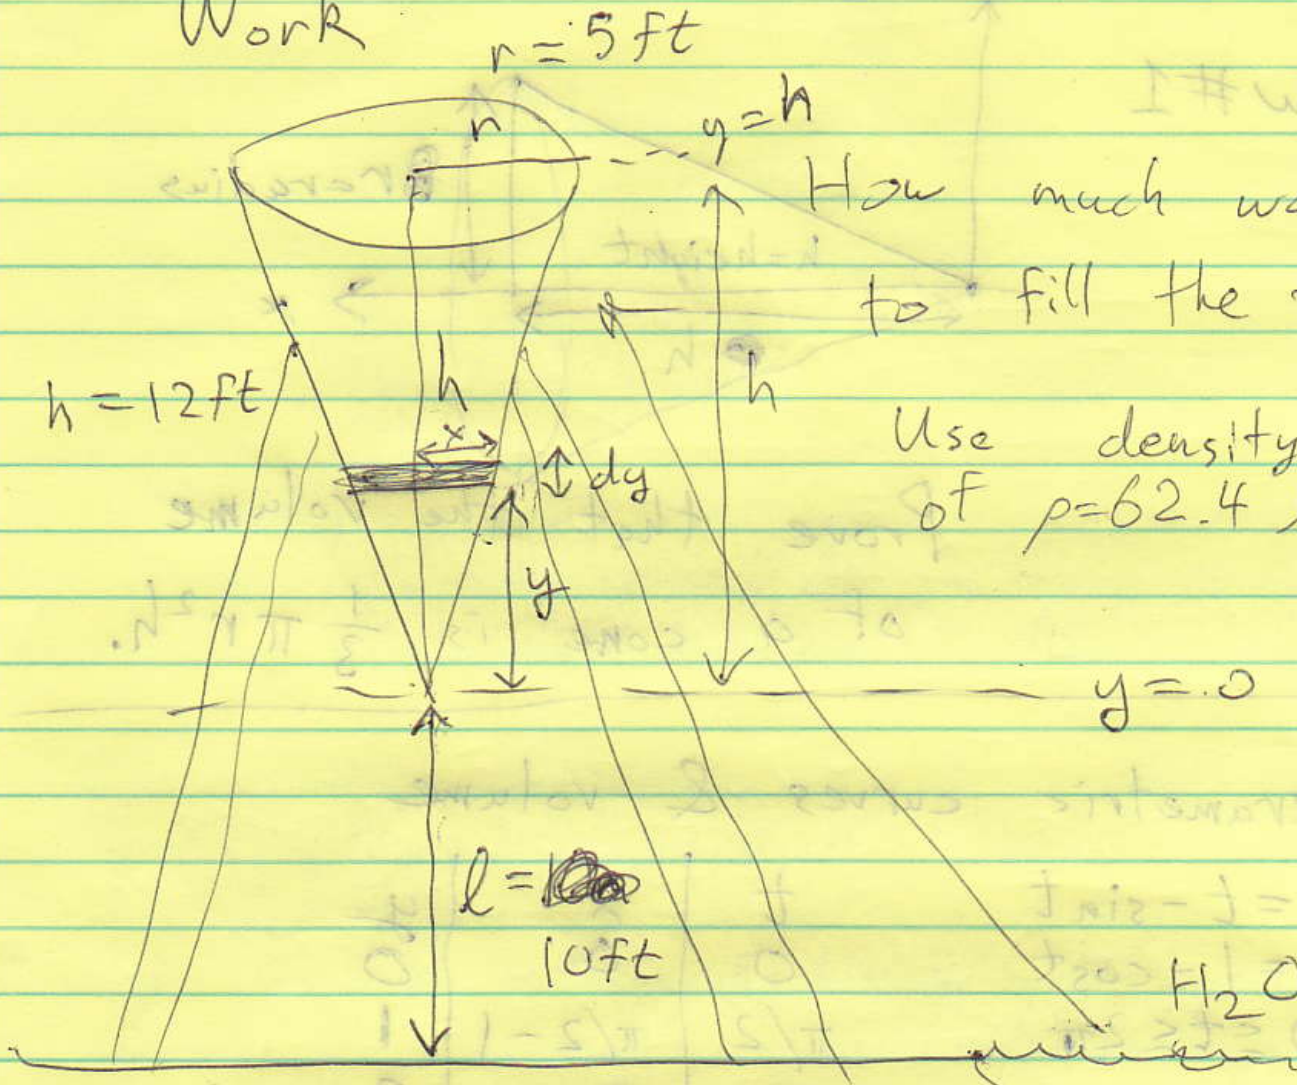 Work
r = 5ft
r
y = h
How much
to fill the
h = 12ft
h
h
x
dy
Use density
of ρ=62.4
y
y = 0
l =
10ft
H₂O